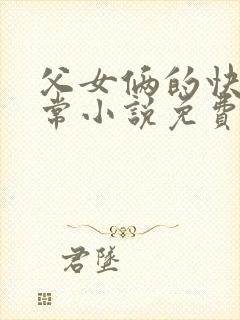 父女俩的快
常小説免費
君墜